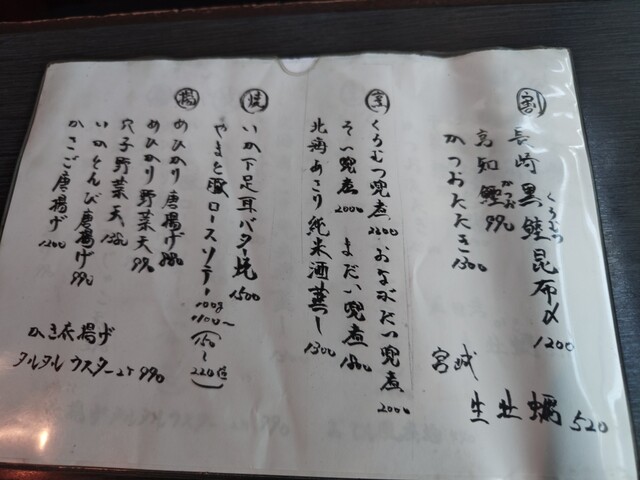 割
長崎 黒鯥昆布〆 1200
くろむつ
高知 鰹 990
かつお
かつおたたき 1300
宮城
生牡蠣 520
煮
くろむつ兜煮 2200 おながだい兜煮 2000
そい兜煮 2000 まだい兜煮 1800
北海あさり純米酒蒸し 1300
焼
いか下足耳バター焼 1500
やまと豚ロースソテー 100g 1100〜
(150〜220位)
揚
めひかり唐揚げ 880
めひかり野菜天 990
穴子野菜天
いかとんび唐揚げ 990
かさご唐揚げ 1200
かき衣揚げ
タルタルウスター 2ケ 990